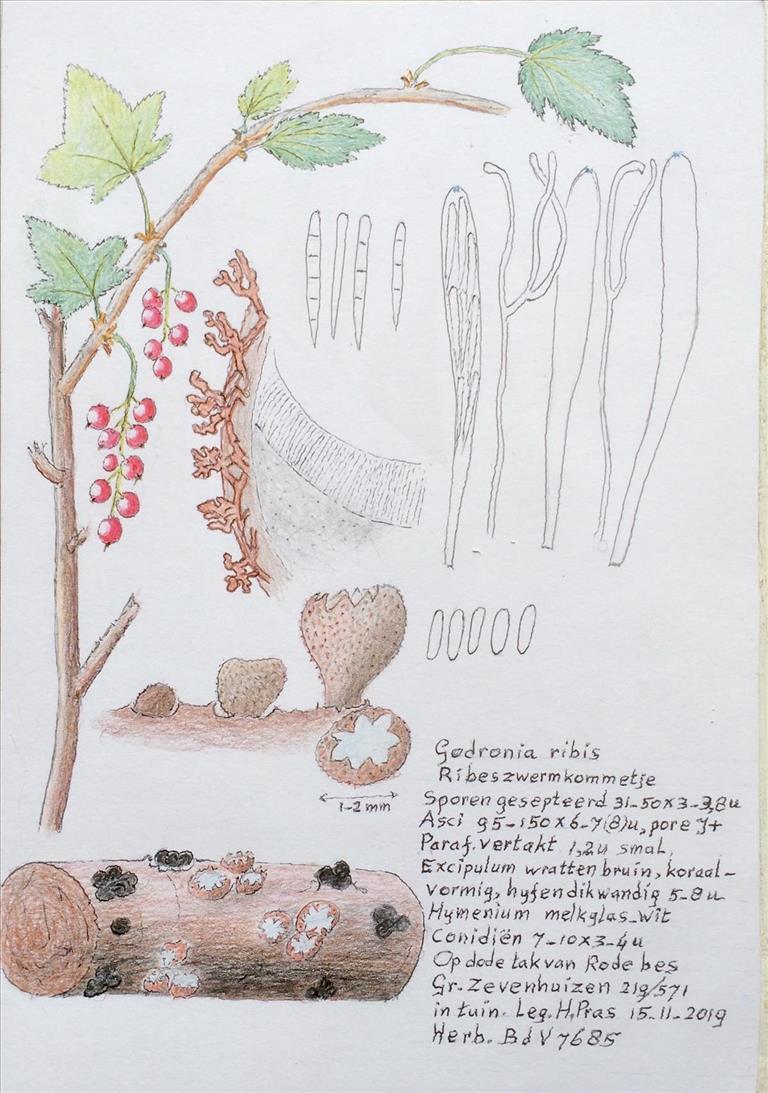 1-2 mm
Godronia ribis
Ribeszwermkommetje
Sporen gesepteerd 31-50x3-3,8u
Asci 95-150x6-7(8)u, pore J+
Paraf. vertakt 1,2u smal,
Excipulum wratten bruin, koraal-
vormig, hyfen dikwandig 5-8u
Hymenium melkglas-wit
Conidiën 7-10x3-4u
Op dode tak van Rode bes
Gr. Zevenhuizen 219/571
in tuin. Leg. H. Pras 15-11-2019
Herb. BdV 7685